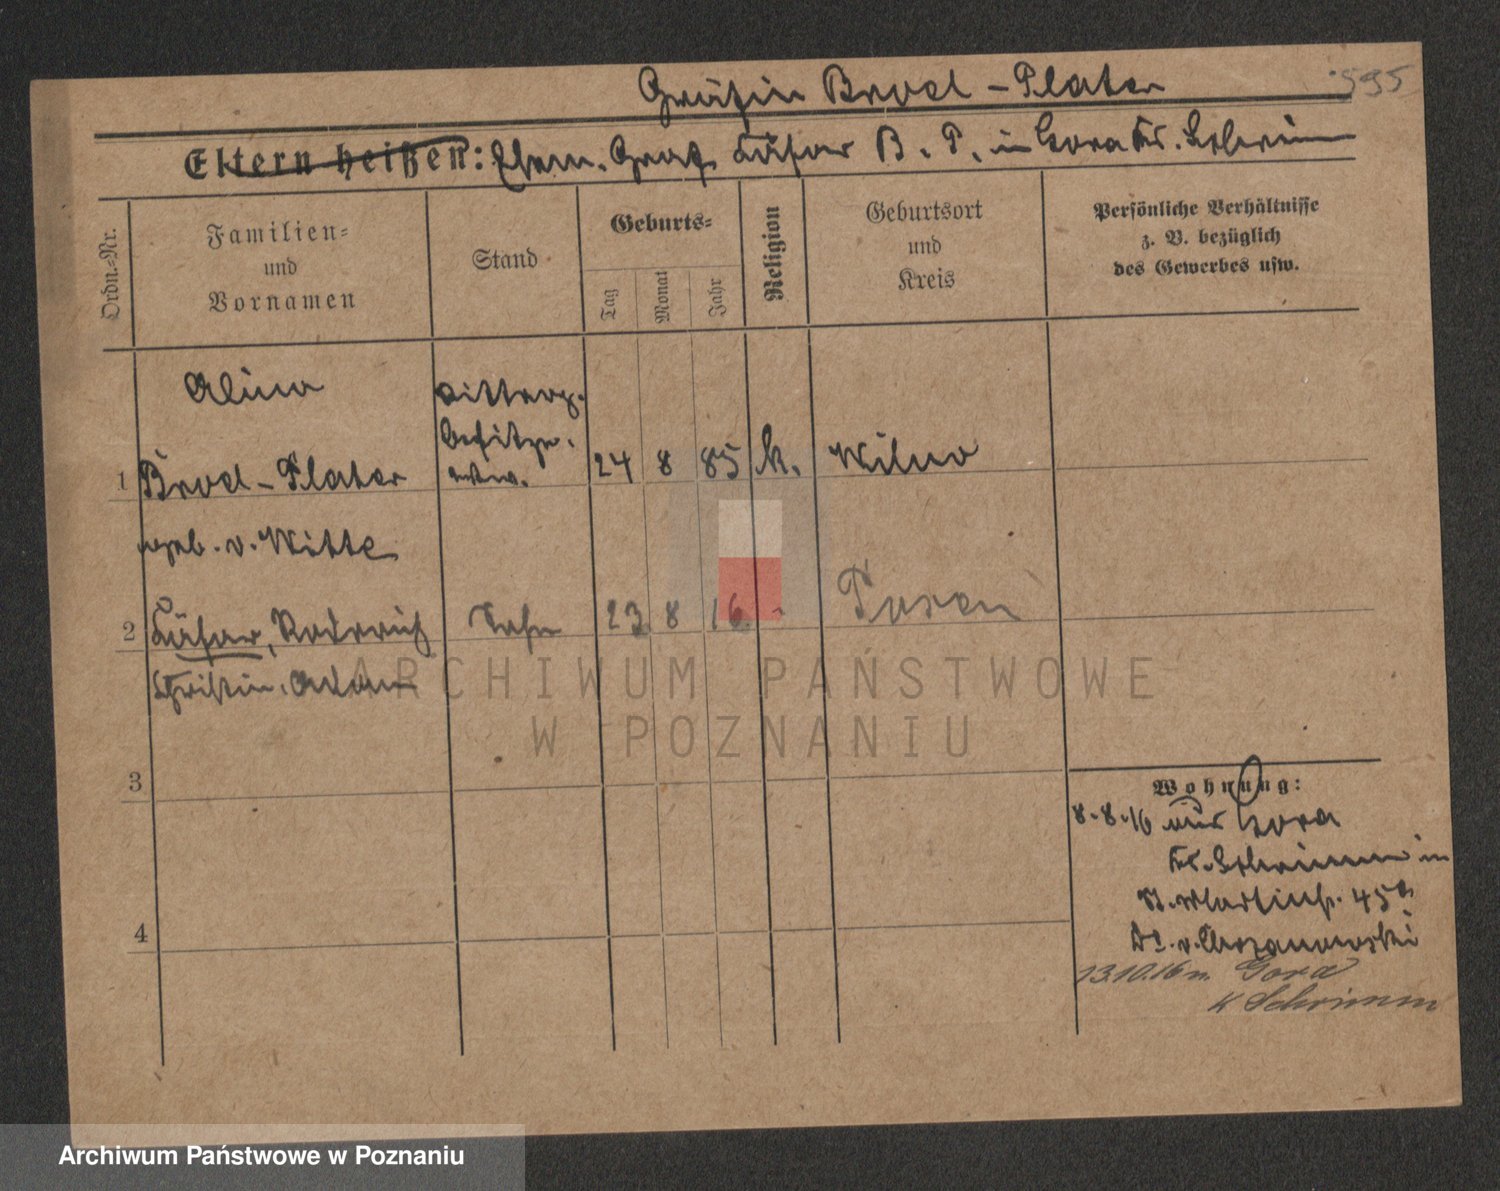 Gräfin Brod-Plater 595
Eltern heißen: Ehem. Graf Cäsar B. P. in Gora Kr. Schrimm
Ordn.-Nr.
Familien-
und
Vornamen
Stand
Geburts-
Tag
Monat
Jahr
Religion
Geburtsort
und
Kreis
Persönliche Verhältnisse
z. B. bezüglich
des Gewerbes usw.
Alina
Ritterg.
besitzer.
1 Brod-Plater 24 8 85 k. Wilno
geb. v. Witte
2 Cäsar, Roderich Sohn 23 8 16 - Posen
Christin, Adam
3
4
Wohnung:
8.8.16 aus Gora
Kr. Schrimm in
St. Martinstr. 45
Dr. v. Chrzanowski
13.10.16 n. Gora
K Schrimm
ARCHIWUM PAŃSTWOWE
W POZNANIU
Archiwum Państwowe w Poznaniu